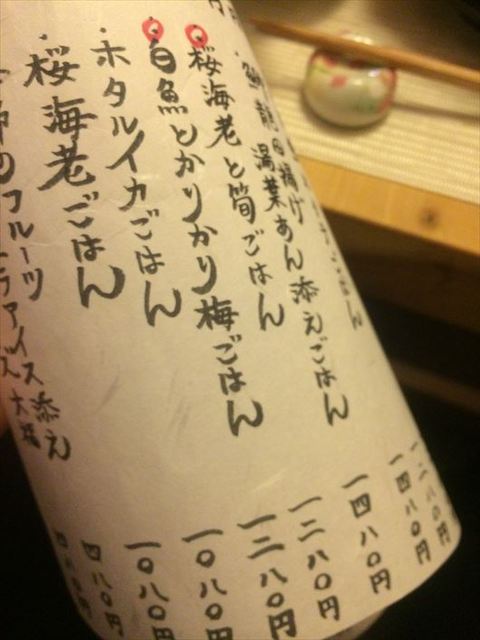 ごはん
龍田揚げ
湯葉あん添えごはん
・桜海老と筍ごはん
・白魚とかりかり梅ごはん
・ホタルイカごはん
・桜海老ごはん
フルーツ
アイス添え
大福
一二八〇円
一四八〇円
一四八〇円
一二八〇円
一二八〇円
一〇八〇円
一〇八〇円
四八〇円